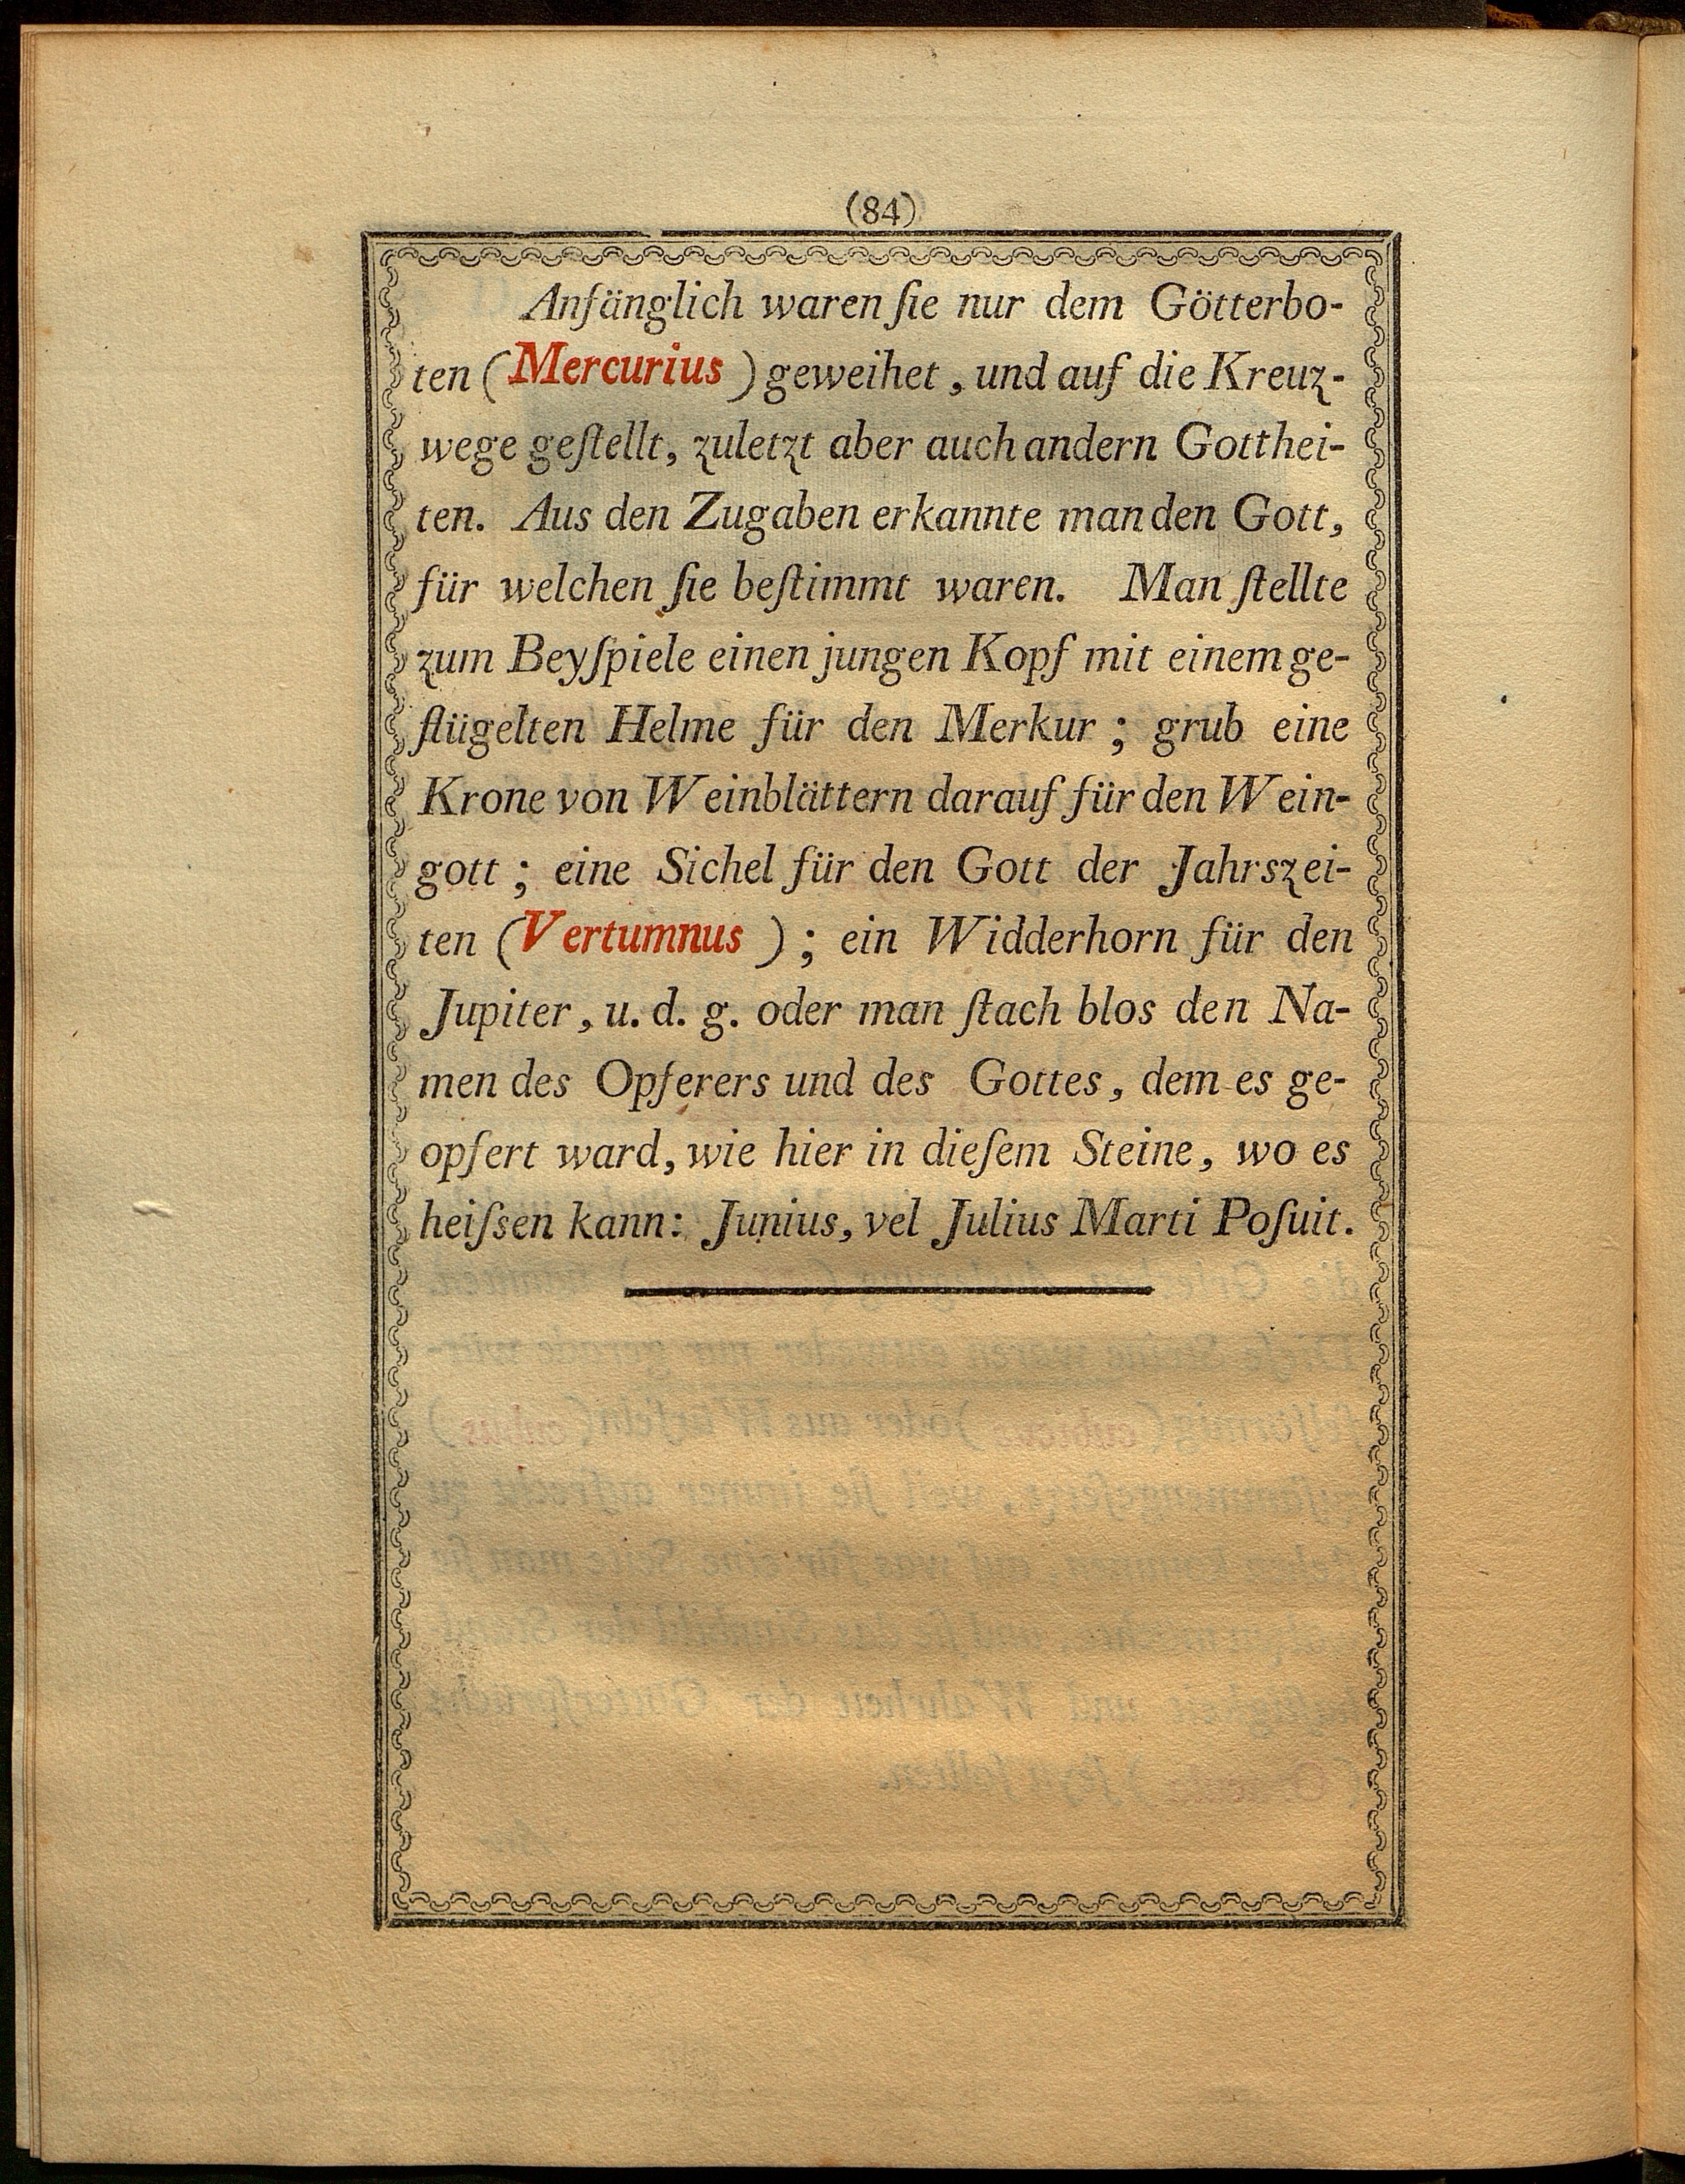 (84)
Anfänglich waren ſie nur dem Götterbo-
ten (Mercurius) geweihet, und auf die Kreuz-
wege geſtellt, zuletzt aber auch andern Gotthei-
ten. Aus den Zugaben erkannte man den Gott,
für welchen ſie beſtimmt waren. Man ſtellte
zum Beyſpiele einen jungen Kopf mit einem ge-
flügelten Helme für den Merkur; grub eine
Krone von Weinblättern darauf für den Wein-
gott; eine Sichel für den Gott der Jahrszei-
ten (Vertumnus); ein Widderhorn für den
Jupiter, u. d. g. oder man ſtach blos den Na-
men des Opferers und des Gottes, dem es ge-
opfert ward, wie hier in dieſem Steine, wo es
heiſsen kann: Junius, vel Julius Marti Poſuit.